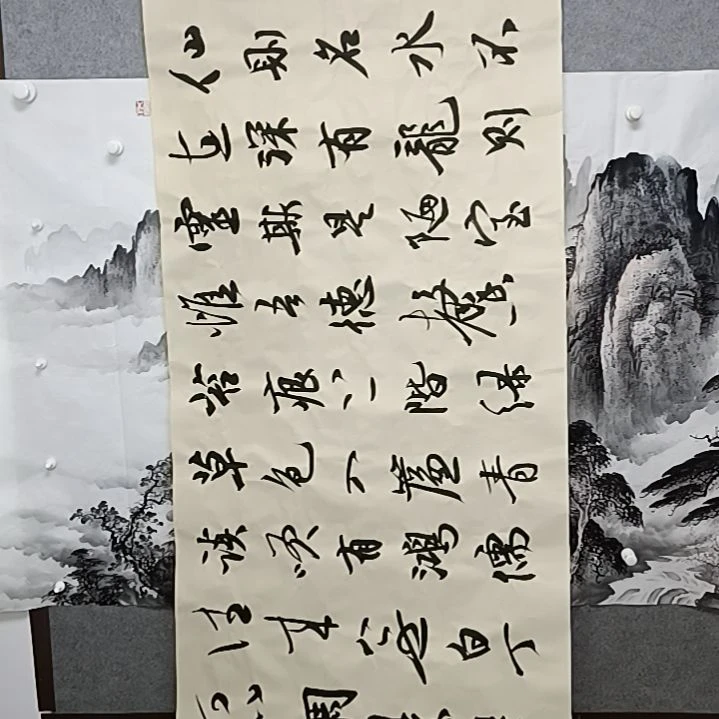 仙則名水不
在深有龍则
靈斯是陋室
惟吾德馨
苔痕上階緑
草色入簾青
談笑有鴻儒
往来無白丁